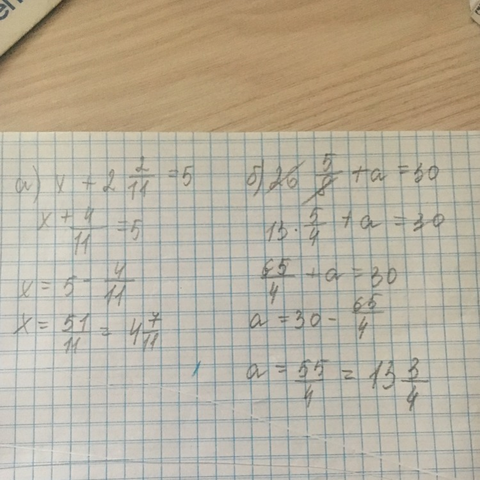 а) x + 2 2/11 = 5
x + 4/11 = 5
x = 5 - 4/11
x = 51/11 = 4 7/11
б) 26 5/8 + a = 30
13 · 5/4 + a = 30
65/4 + a = 30
a = 30 - 65/4
a = 55/4 = 13 3/4